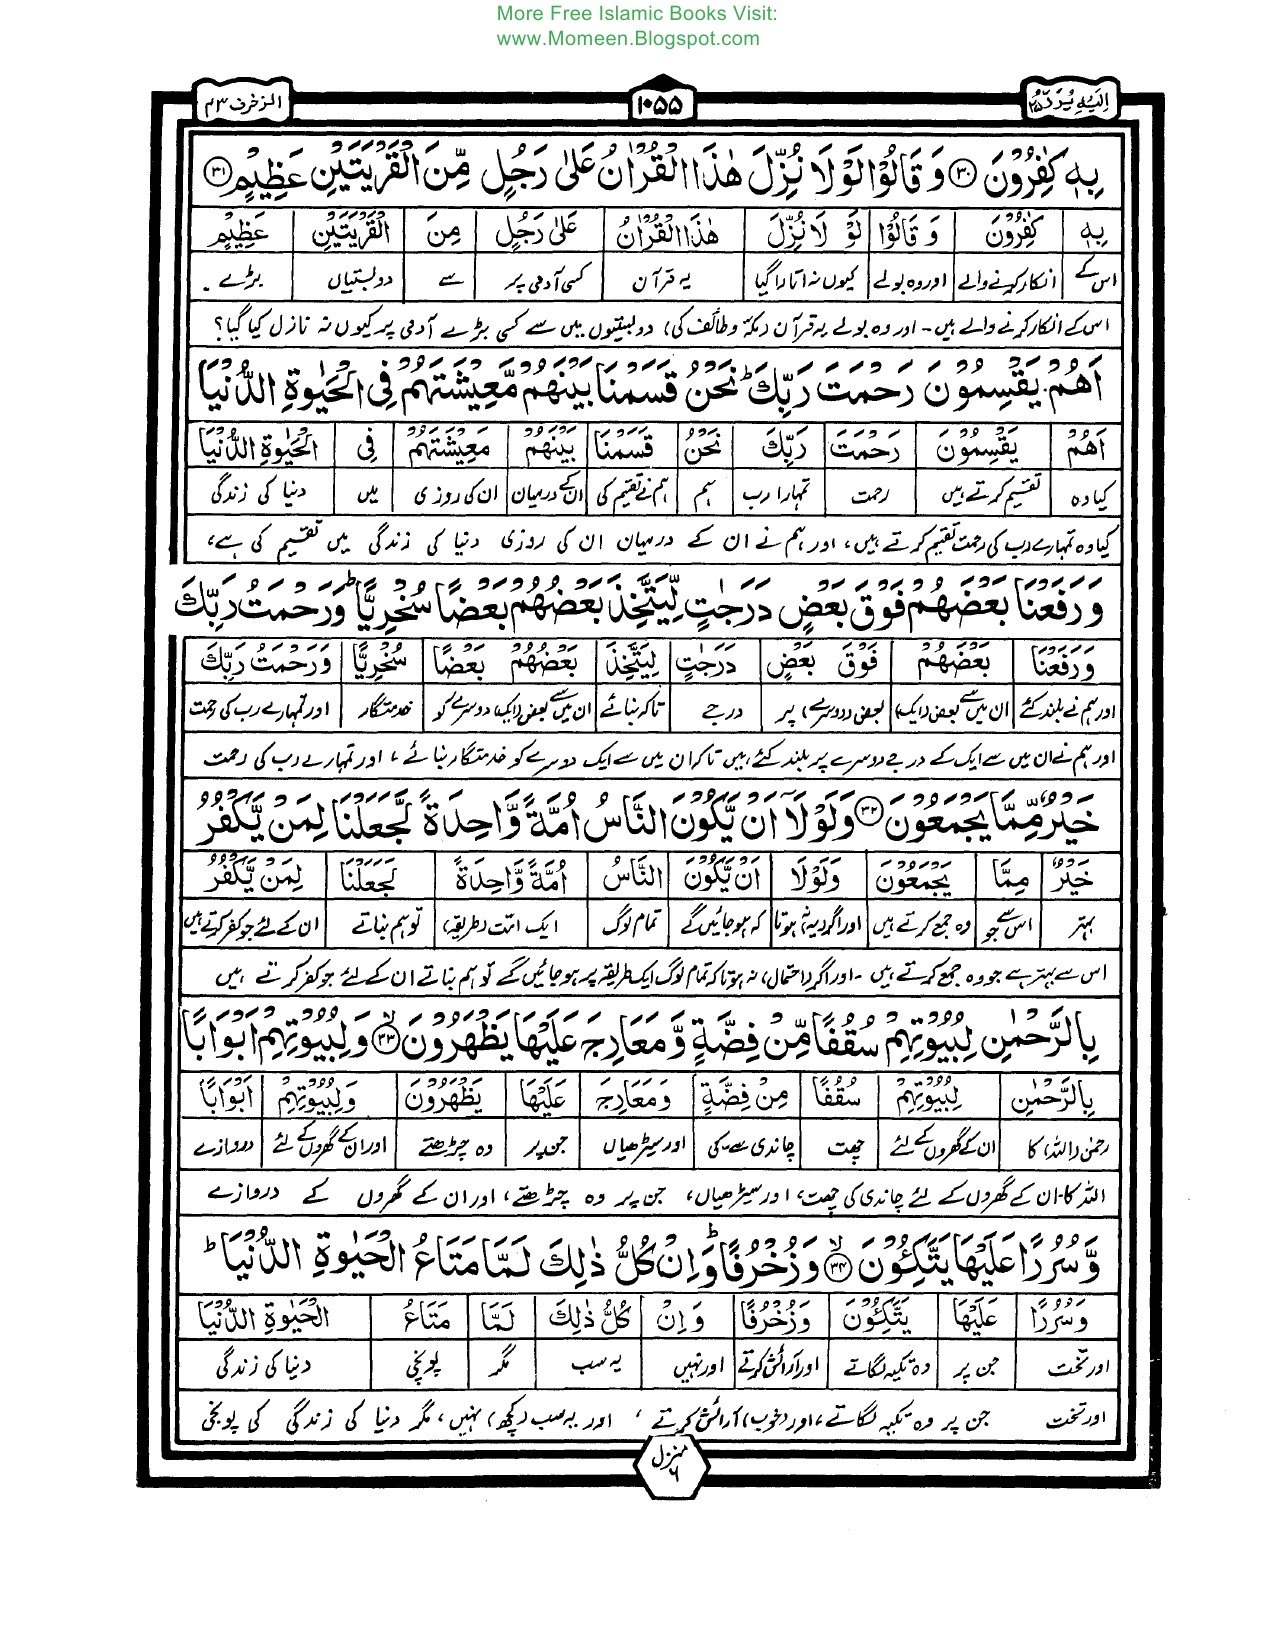 More Free Islamic Books Visit:
www.Momeen.Blogspot.com
اِلَیْهِ یُرَدُّ ۲۵
۱۰۵۵
الزخرف ۴۳
بِهٖ كٰفِرُوْنَ ۝۳۰ وَ قَالُوْا لَوْ لَا نُزِّلَ هٰذَا الْقُرْاٰنُ عَلٰى رَجُلٍ مِّنَ الْقَرْیَتَیْنِ عَظِیْمٍ ۝۳۱
بِهٖ كٰفِرُوْنَ وَ قَالُوْا لَوْ لَا نُزِّلَ هٰذَا الْقُرْاٰنُ عَلٰى رَجُلٍ مِنَ الْقَرْیَتَیْنِ عَظِیْمٍ
اس کے انکار کرنے والے اور وہ بولے کیوں نہ اتارا گیا یہ قرآن کسی آدمی پر سے دو بستیاں بڑے۔
اس کے انکار کرنے والے ہیں۔ اور وہ بولے یہ قرآن (مکہ و طائف کی) دو بستیوں میں سے کسی بڑے آدمی پر کیوں نہ نازل کیا گیا؟
اَهُمْ یَقْسِمُوْنَ رَحْمَتَ رَبِّكَ ؕ نَحْنُ قَسَمْنَا بَیْنَهُمْ مَّعِیْشَتَهُمْ فِی الْحَیٰوةِ الدُّنْیَا
اَهُمْ یَقْسِمُوْنَ رَحْمَتَ رَبِّكَ نَحْنُ قَسَمْنَا بَیْنَهُمْ مَعِیْشَتَهُمْ فِی الْحَیٰوةِ الدُّنْیَا
کیا وہ تقسیم کرتے ہیں رحمت تمہارا رب ہم ہم نے تقسیم کی ان کے درمیان ان کی روزی میں دنیا کی زندگی
کیا وہ تمہارے رب کی رحمت تقسیم کرتے ہیں، اور ہم نے ان کے درمیان ان کی روزی دنیا کی زندگی میں تقسیم کی ہے،
وَ رَفَعْنَا بَعْضَهُمْ فَوْقَ بَعْضٍ دَرَجٰتٍ لِّیَتَّخِذَ بَعْضُهُمْ بَعْضًا سُخْرِیًّا ؕ وَ رَحْمَتُ رَبِّكَ
وَرَفَعْنَا بَعْضَهُمْ فَوْقَ بَعْضٍ دَرَجٰتٍ لِیَتَّخِذَ بَعْضُهُمْ بَعْضًا سُخْرِیًّا وَرَحْمَتُ رَبِّكَ
اور ہم نے بلند کئے ان میں سے بعض (ایک) بعض (دوسرے) پر درجے تاکہ بنائے ان میں سے بعض (ایک) دوسرے کو خدمتگار اور تمہارے رب کی رحمت
اور ہم نے ان میں سے ایک کے درجے دوسرے پر بلند کئے ہیں تاکہ ان میں سے ایک دوسرے کو خدمتگار بنائے، اور تمہارے رب کی رحمت
خَیْرٌ مِّمَّا یَجْمَعُوْنَ ۝۳۲ وَ لَوْ لَاۤ اَنْ یَّكُوْنَ النَّاسُ اُمَّةً وَّاحِدَةً لَّجَعَلْنَا لِمَنْ یَّكْفُرُ
خَیْرٌ مِمَّا یَجْمَعُوْنَ وَلَوْلَا اَنْ یَّكُوْنَ النَّاسُ اُمَّةً وَّاحِدَةً لَجَعَلْنَا لِمَنْ یَّكْفُرُ
بہتر اس سے جو وہ جمع کرتے ہیں اور اگر (یہ) نہ ہوتا کہ ہو جائیں گے تمام لوگ ایک امت (طریقہ) تو ہم بناتے ان کے لئے جو کفر کرتے ہیں
اس سے بہتر ہے جو وہ جمع کرتے ہیں۔ اور اگر (احتمال) نہ ہوتا کہ تمام لوگ ایک طریقہ پر ہو جائیں گے تو ہم بناتے ان کے لئے جو کفر کرتے ہیں
بِالرَّحْمٰنِ لِبُیُوْتِهِمْ سُقُفًا مِّنْ فِضَّةٍ وَّ مَعَارِجَ عَلَیْهَا یَظْهَرُوْنَ ۝۳۳ وَ لِبُیُوْتِهِمْ اَبْوَابًا
بِالرَّحْمٰنِ لِبُیُوْتِهِمْ سُقُفًا مِنْ فِضَّةٍ وَ مَعَارِجَ عَلَیْهَا یَظْهَرُوْنَ وَلِبُیُوْتِهِمْ اَبْوَابًا
رحمٰن (اللہ) کا ان کے گھروں کے لئے چھت چاندی سے۔کی اور سیڑھیاں جن پر وہ چڑھتے اور ان کے گھروں کے لئے دروازے
اللہ کا۔ ان کے گھروں کے لئے چاندی کی چھت، اور سیڑھیاں، جن پر وہ چڑھتے، اور ان کے گھروں کے دروازے
وَّ سُرُرًا عَلَیْهَا یَتَّكِـُٔوْنَ ۝۳۴ وَ زُخْرُفًا ؕ وَ اِنْ كُلُّ ذٰلِكَ لَمَّا مَتَاعُ الْحَیٰوةِ الدُّنْیَا ؕ
وَ سُرُرًا عَلَیْهَا یَتَّكِـُٔوْنَ وَزُخْرُفًا وَ اِنْ كُلُّ ذٰلِكَ لَمَّا مَتَاعُ الْحَیٰوةِ الدُّنْیَا
اور تخت جن پر وہ تکیہ لگاتے اور آرائش کرتے اور نہیں یہ سب مگر پونجی دنیا کی زندگی
اور تخت جن پر وہ تکیہ لگاتے، اور (خوب) آرائش کرتے، اور یہ سب (کچھ) نہیں، مگر دنیا کی زندگی کی پونجی
منزل ۶